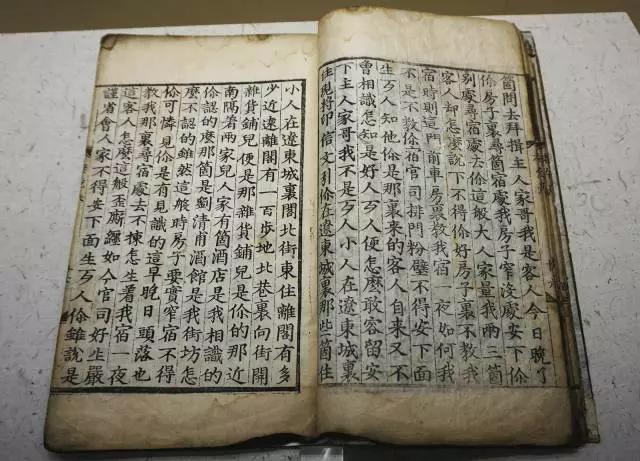 箇問去拜揖主人家哥我是客人今日晚了
伱房子裏尋箇宿處我房子窄沒處安下伱
別處尋宿處去伱這般大人家量我兩三箇
客人却怎麼說下不得伱好房子裏不教我
宿時則這門前車房裏教我宿一夜如何我
不是不教伱宿官司排門粉壁不得安下面
生歹人知他伱是那裏來的客人自來又不
曾相識怎知是好人歹人便怎麼敢容留安
下主人家哥我不是歹人小人在遼東城裏
住見將印信文引伱在遼東城裏那些箇住
小人在遼東城裏閣北街東住離閣有多
少近遠離閣有一百步地北巷裏向街開
雜貨鋪兒便是那雜貨鋪兒是伱的那近
南隔着兩家兒人家有箇酒店是我相識的
伱認的麼那箇是劉清甫酒館是我街坊怎
麼不認的雖然這般時房子委實窄宿不得
伱可憐見伱是有見識的這早晚日頭落也
教我那裏尋宿處去不揀怎生着我宿一夜
這客人怎麼這般歪廝纏如今官司好生嚴
謹省會人家不得安下面生歹人伱雖說是